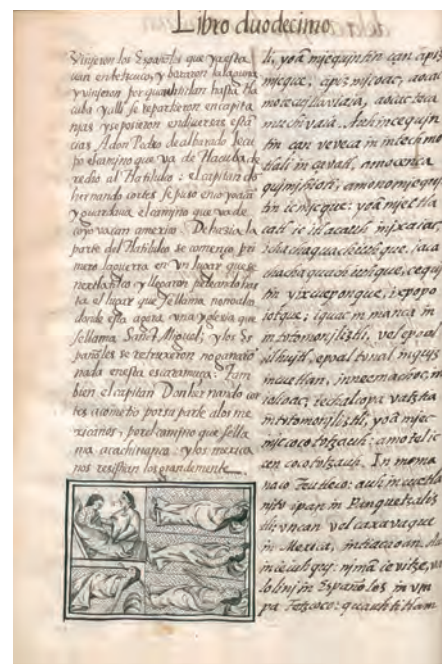 Libro duodecimo
Vinjeron los Españoles que ya esta
van en tetzcuco, y bararon la laguna
y vinjeron por quauhtitlan hasta tla
cuba y alli se repartieron en capita
njas y se pusieron en diuersas esta
cias A don Pedro de albarado le cu
po el camjno que va de tlacuba de
recho al tlatilulco: el capitan do
hernando cortes se puso en coyoacã
y guardaua el camjno que va de
coyoacan a mexico. De hazia la
parte del tlatilulco se començo pri
mero la guerra en vn lugar que se
y llegaron peleando has
ta el lugar que se llama nonoalco
donde esta agora vna yglesia que
se llama Sanct Miguel; y los Es
pañoles se retruxeron no ganarõ
nada en esta escaramuça: Tam
bien el capitan Don hernando cor
tes acometio por su parte a los me
xicanos, por el camjno que se lla
ma acachinanco: y los mexica
nos resistian los grandemente
tli, yoã mjequintin çan apiz
mjcque, apizmjcoac, aocac
motecuitlaviaia, aocac teca
muchivaia. Auh in cequjn
tin çan veveca in intech mo
tlali in çavatl, amo cenca
qujmjhioti, amono mjequj
tin ic mjcque: yoã mjec tla
catl ic itlacauh in jxaiac,
ichachaquachiuhque, iaca
chachaquachiuhque, cequj
tin yixcueponque, ixpopo
iotque; iquac in manca in
in totomonjliztli, vel epoal
ilhujtl, epoal tonal in qujz
in cuetlan, innecmachoc, in
ioliooac; ie chalcopa vatztia
in totomonjliztli, yoã mjec
inic cocototzauh: amo tel ic
cen cocototzauh. In moma
naco Teutleco: auh in cuetla
nito ipan in Panquetzaliz
tli; vncan vel caxavaque
in Mexica, in tiacaoan. Auh
in ie iuhquj; njmã ie vitze, va
lolinj in Españoles in vm
pa Tetzcoco: quauhtitlam